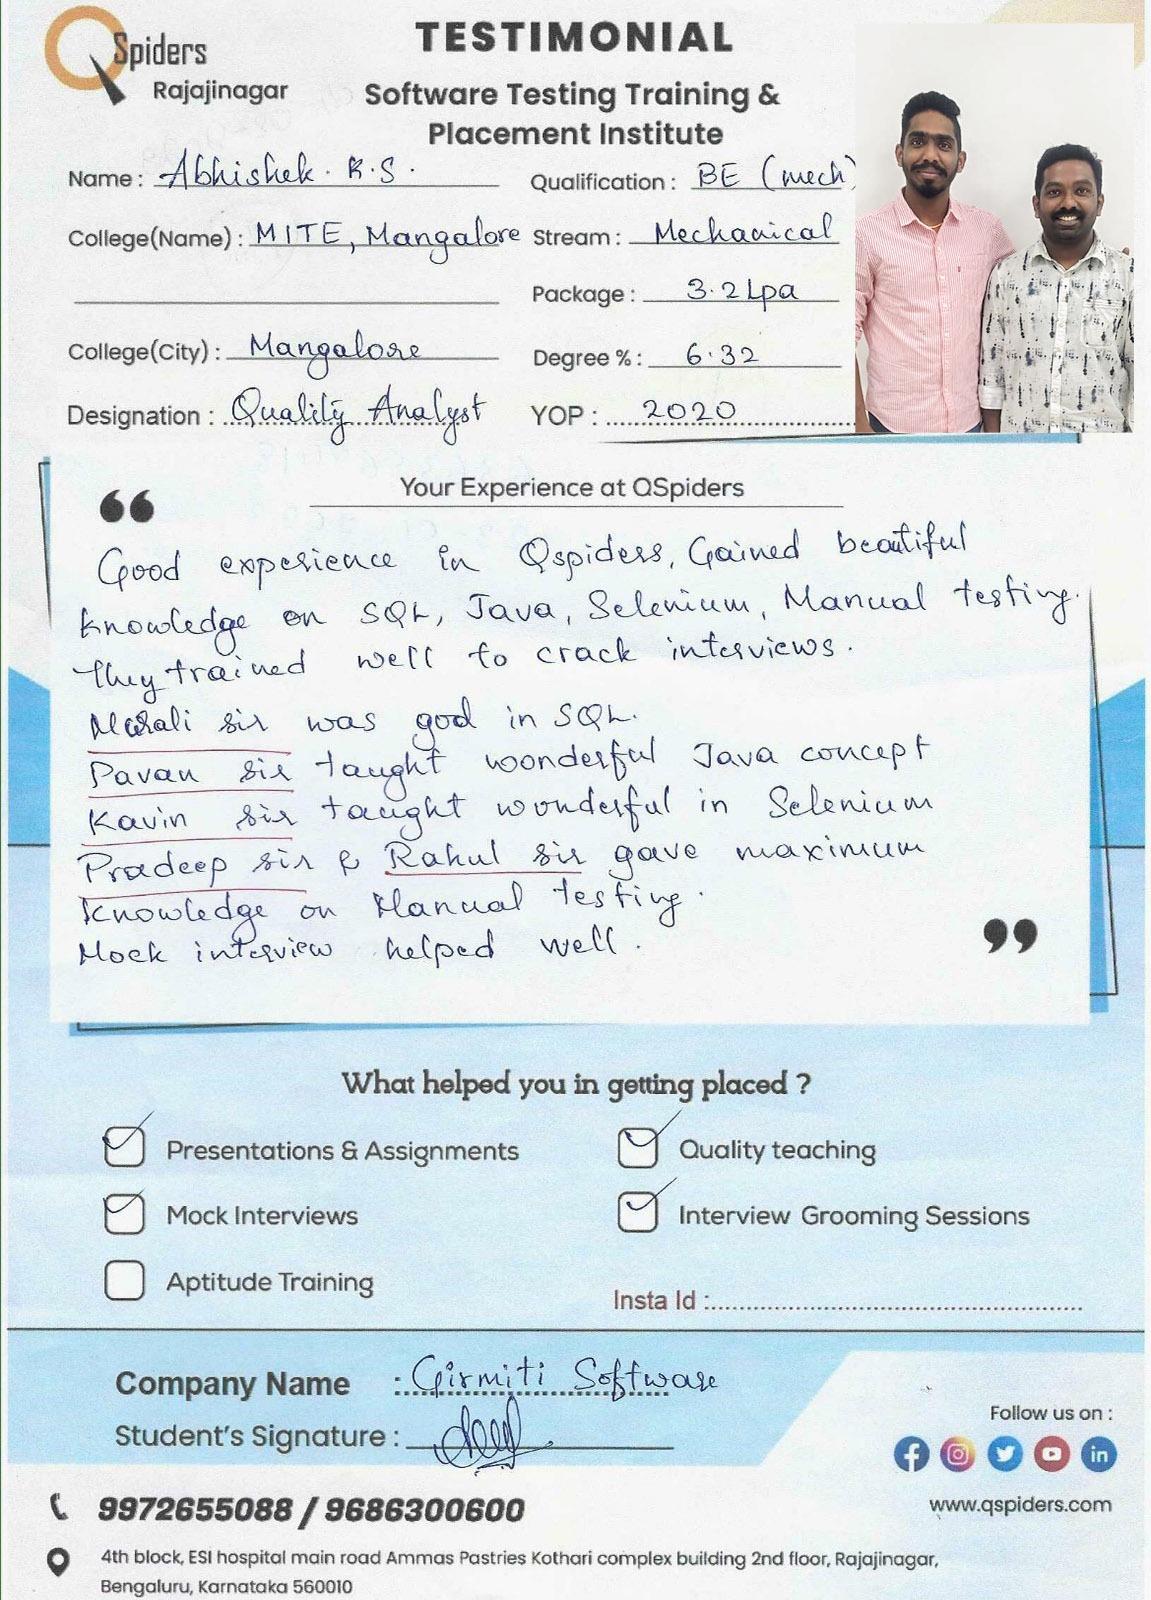 QSpiders
Rajajinagar
TESTIMONIAL
Software Testing Training &
Placement Institute
Name : Abhishek. R.S.
Qualification : BE (mech)
College(Name) : MITE, Mangalore
Stream : Mechanical
Package : 3.2 Lpa
College(City) : Mangalore
Degree % : 6.32
Designation : Quality Analyst
YOP : 2020
Your Experience at QSpiders
“
Good experience in Qspiders, Gained beautiful
knowledge on SQL, Java, Selenium, Manual testing.
They trained well to crack interviews.
Murali sir was god in SQL.
Pavan sir taught wonderful Java concept
Kavin sir taught wonderful in Selenium
Pradeep sir & Rahul sir gave maximum
knowledge on Manual testing.
Mock interview helped well.
”
What helped you in getting placed ?
Presentations & Assignments
Quality teaching
Mock Interviews
Interview Grooming Sessions
Aptitude Training
Insta Id :
Company Name : Girmiti Software
Student's Signature :
Follow us on :
9972655088 / 9686300600
www.qspiders.com
4th block, ESI hospital main road Ammas Pastries Kothari complex building 2nd floor, Rajajinagar,
Bengaluru, Karnataka 560010